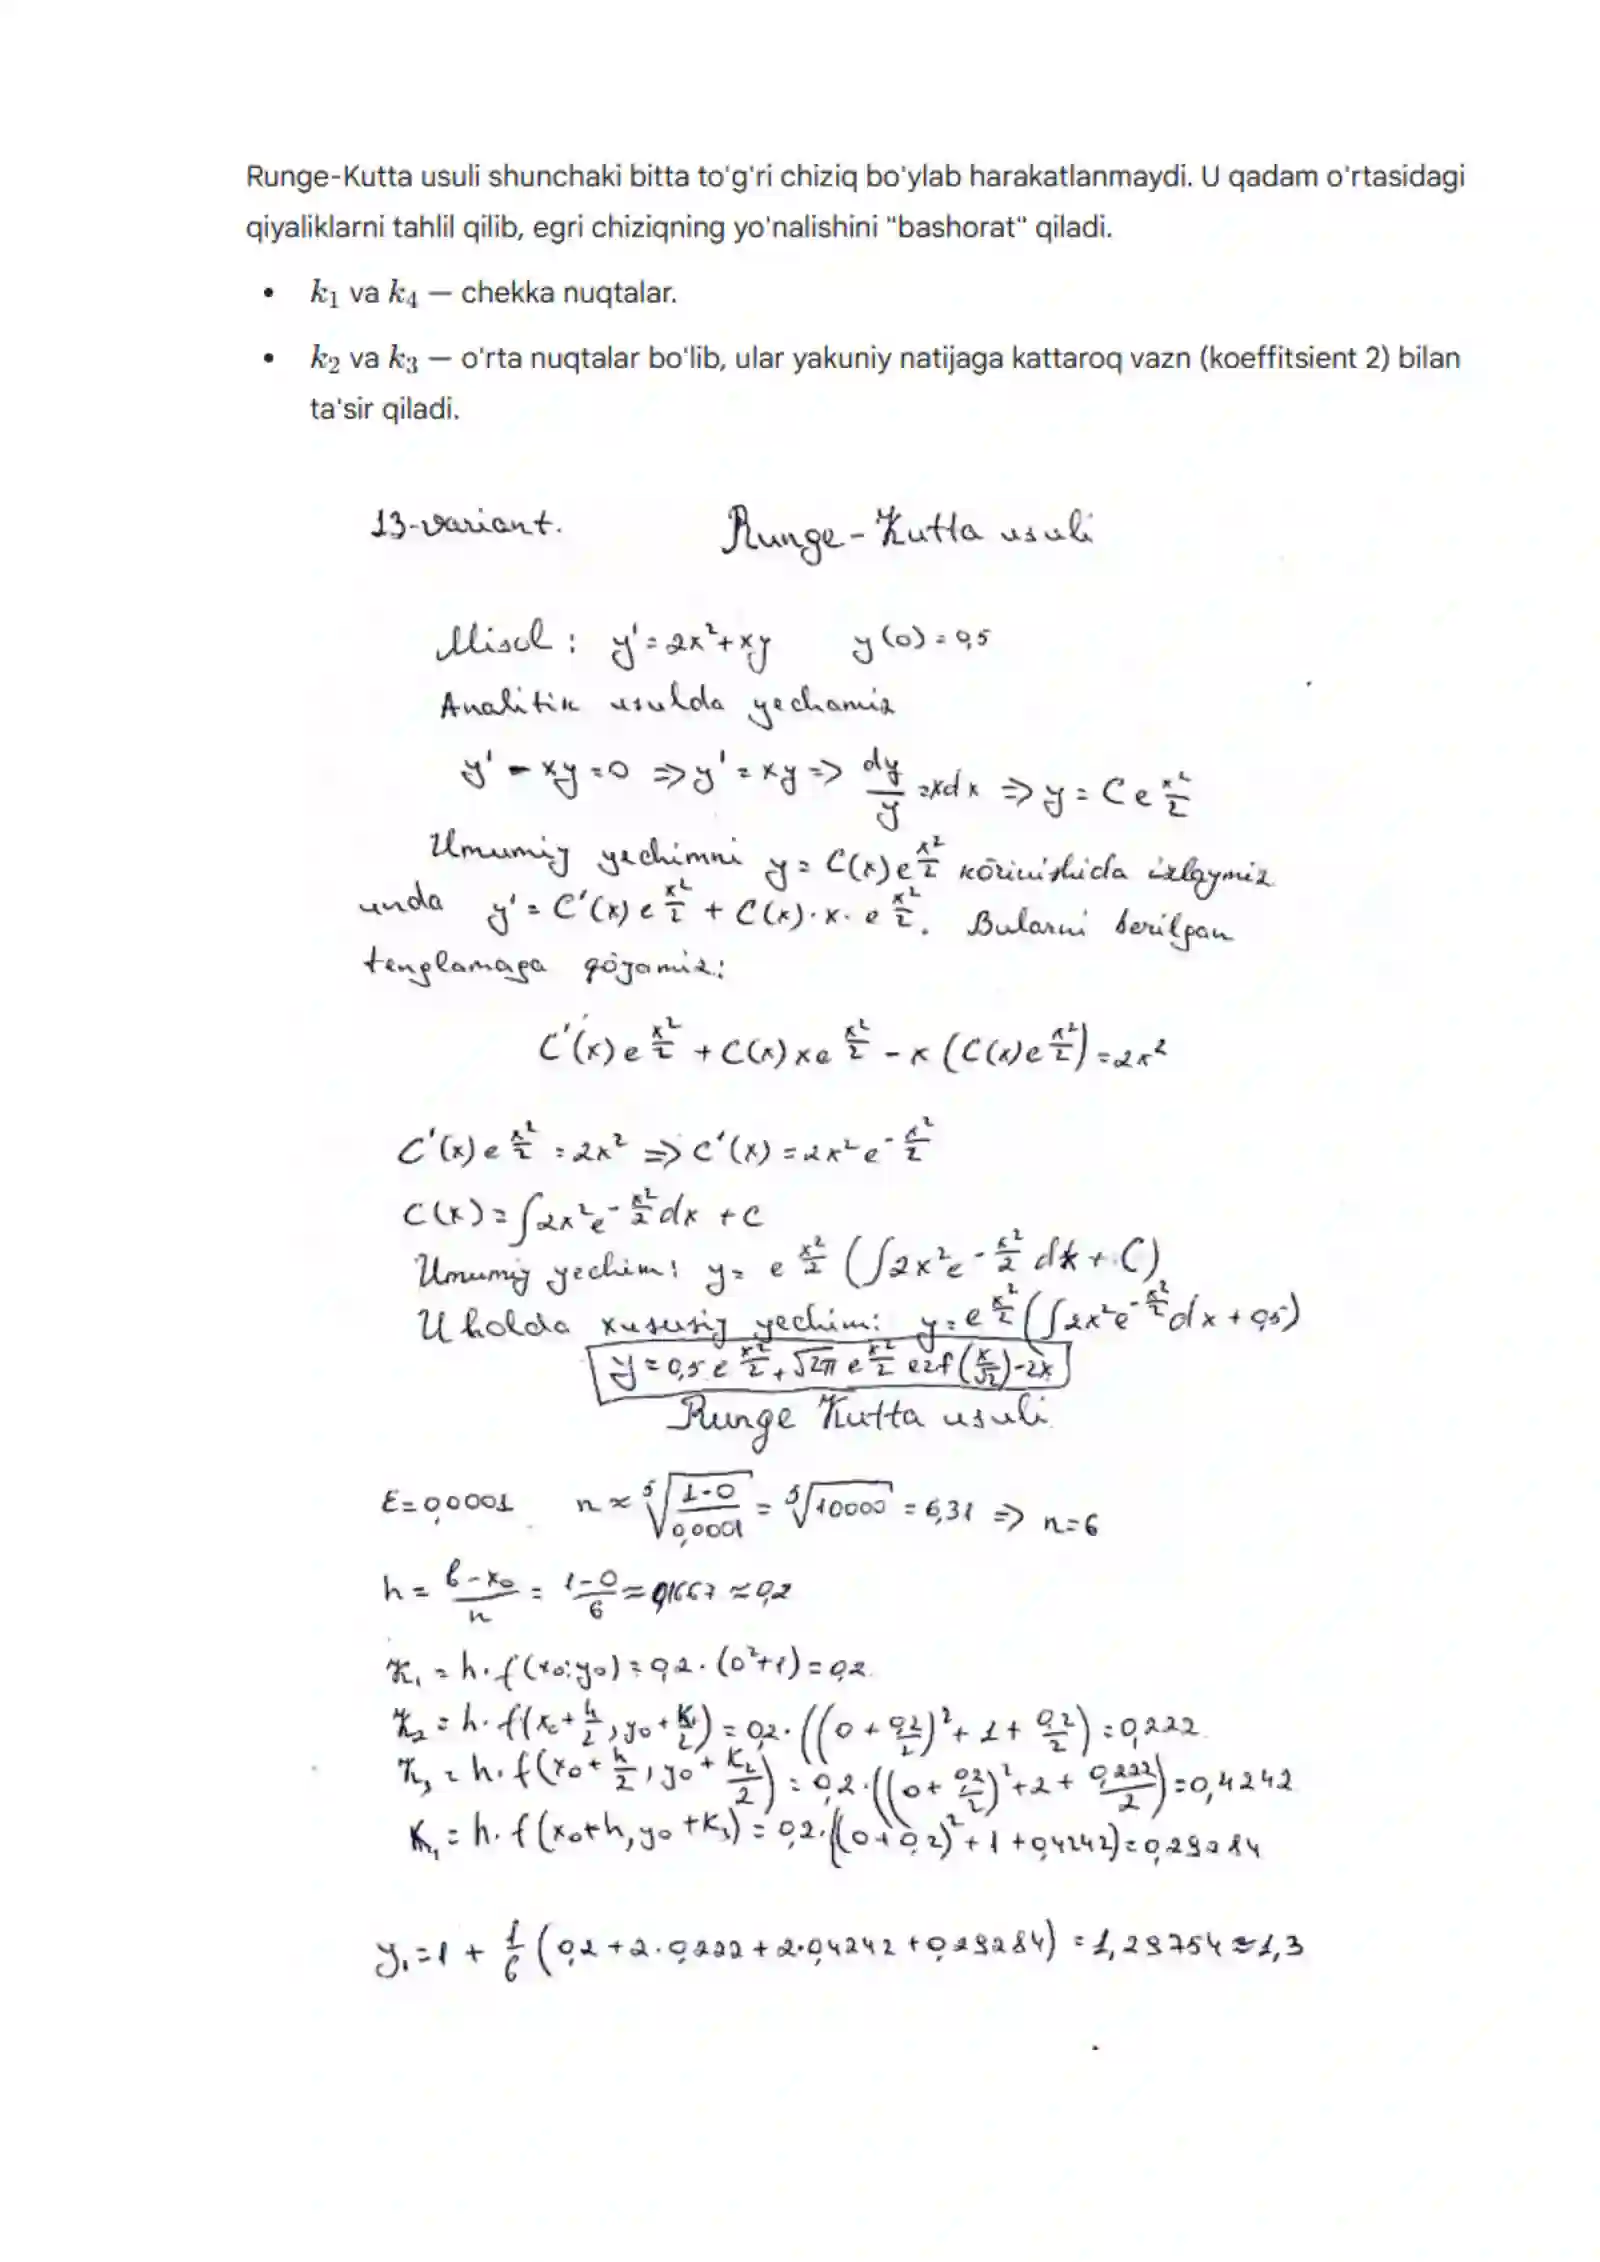 Runge-Kutta usuli shunchaki bitta to'g'ri chiziq bo'ylab harakatlanmaydi. U qadam o'rtasidagi
qiyaliklarni tahlil qilib, egri chiziqning yo'nalishini "bashorat" qiladi.
• k₁ va k₄ — chekka nuqtalar.
• k₂ va k₃ — o'rta nuqtalar bo'lib, ular yakuniy natijaga kattaroq vazn (koeffitsient 2) bilan
ta'sir qiladi.
13-variant. Runge-Kutta usuli
Misol: y' = 2x²+xy y(0)=0,5
Analitik usulda yechamiz
y' - xy = 0 => y' = xy => dy/y = xdx => y = C e^(x²/2)
Umumiy yechimni y = C(x)e^(x²/2) kōrinishida izlaymiz
unda y' = C'(x) e^(x²/2) + C(x)·x·e^(x²/2). Bularni berilgan
tenglamaga qōyamiz:
C'(x) e^(x²/2) + C(x) x e^(x²/2) - x (C(x) e^(x²/2)) = 2x²
C'(x) e^(x²/2) = 2x² => C'(x) = 2x² e^(-x²/2)
C(x) = ∫2x²e^(-x²/2) dx + C
Umumiy yechim: y = e^(x²/2) (∫2x²e^(-x²/2) dx + C)
U holda xususiy yechim: y = e^(x²/2) (∫2x²e^(-x²/2) dx + 0,5)
y = 0,5 e^(x²/2) + √2π e^(x²/2) erf(x/√2) - 2x
Runge Kutta usuli
Ɛ = 0,0001 n ≈ ⁵√((1-0)/0,0001) = ⁵√10000 = 6,31 => n=6
h = (b-x₀)/n = (1-0)/6 ≈ 0,1667 ≈ 0,2
K₁ = h·f(x₀;y₀) = 0,2·(0²+1) = 0,2
K₂ = h·f(x₀+h/2, y₀+K₁/2) = 0,2·((0+0,2/2)²+1+0,2/2) = 0,222
K₃ = h·f(x₀+h/2, y₀+K₂/2) = 0,2·((0+0,2/2)²+2+0,222/2) = 0,4242
K₁ = h·f(x₀+h, y₀+K₃) = 0,2·((0+0,2)²+1+0,4242) = 0,29284
y₁ = 1 + 1/6 (0,2+2·0,222+2·0,4242+0,29284) = 1,29754 ≈ 1,3